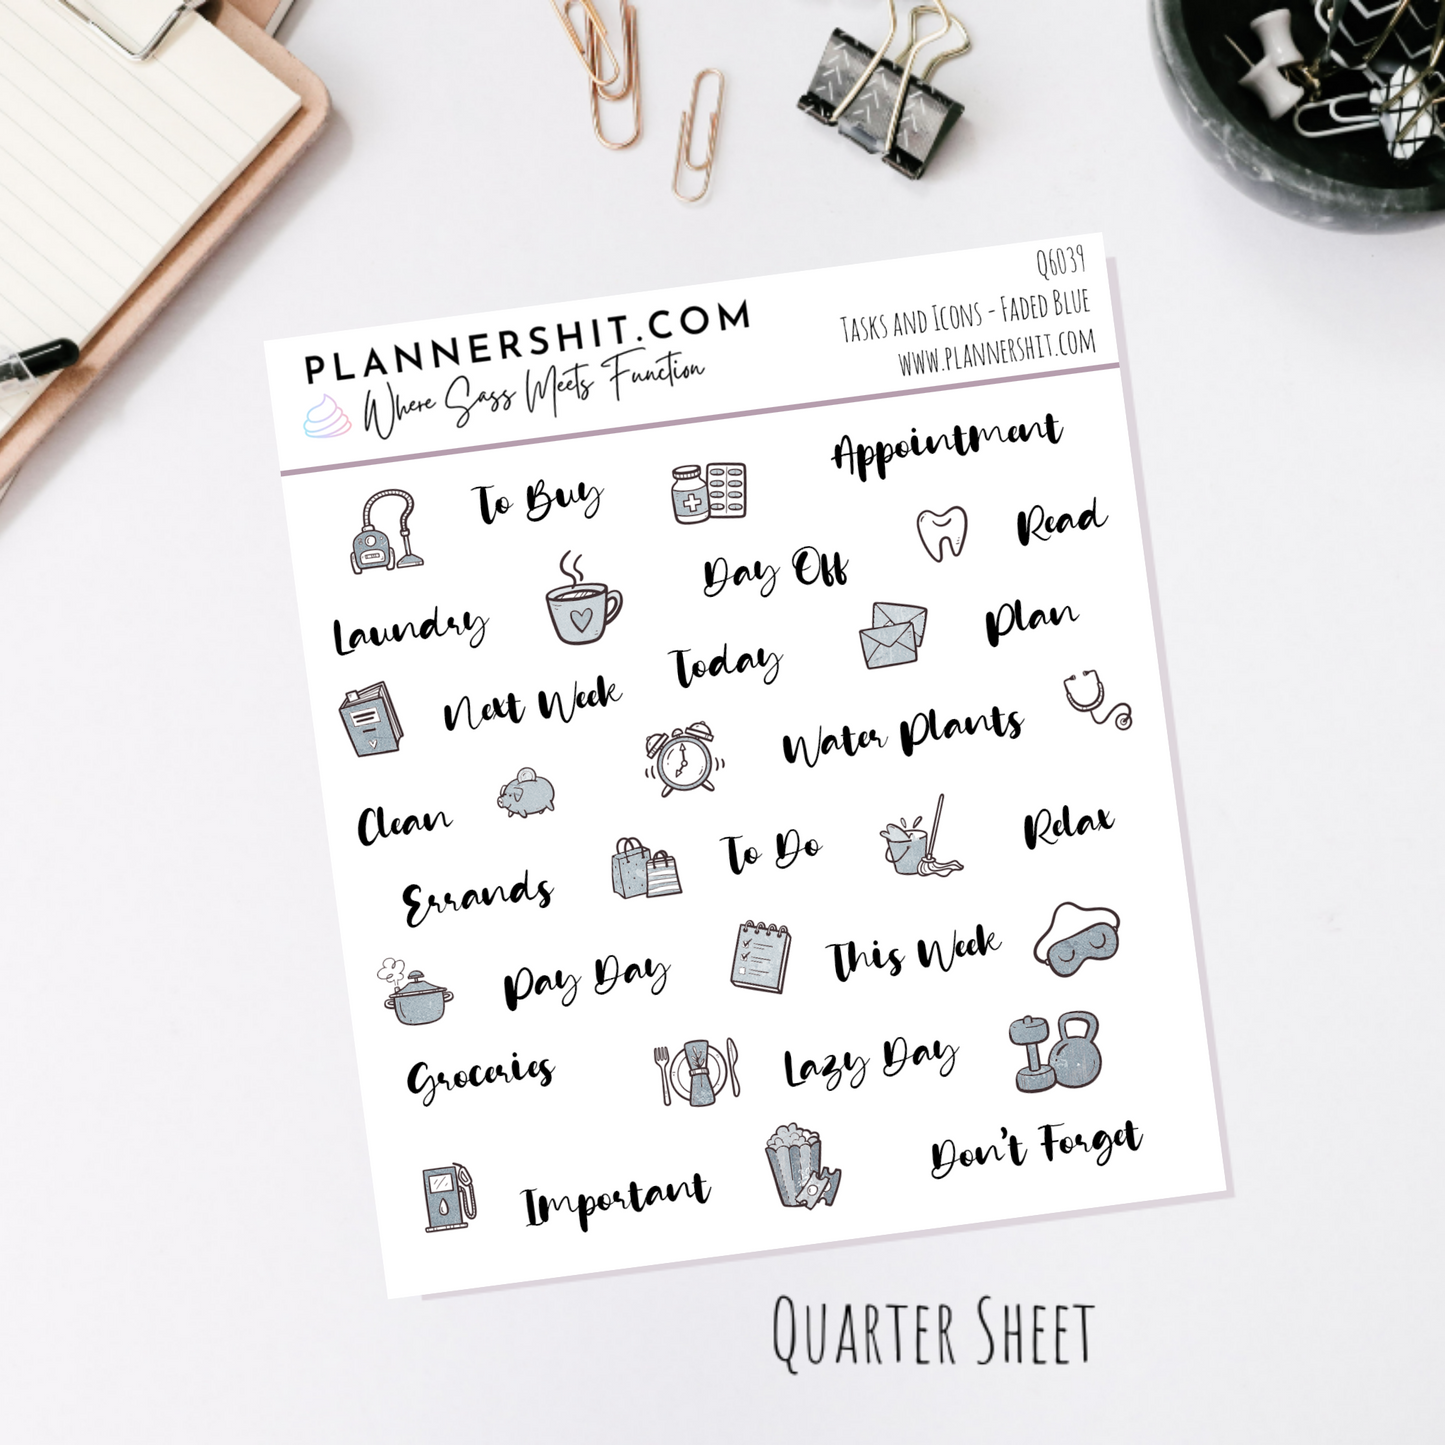 PLANNERSHIT.COM
Where Sass Meets Function
Q6039
TASKS AND ICONS - FADED BLUE
WWW.PLANNERSHIT.COM
Appointment
To Buy
Read
Day Off
Laundry
Plan
Today
Next Week
Water Plants
Clean
Relax
To Do
Errands
This Week
Pay Day
Lazy Day
Groceries
Don't Forget
Important
QUARTER SHEET